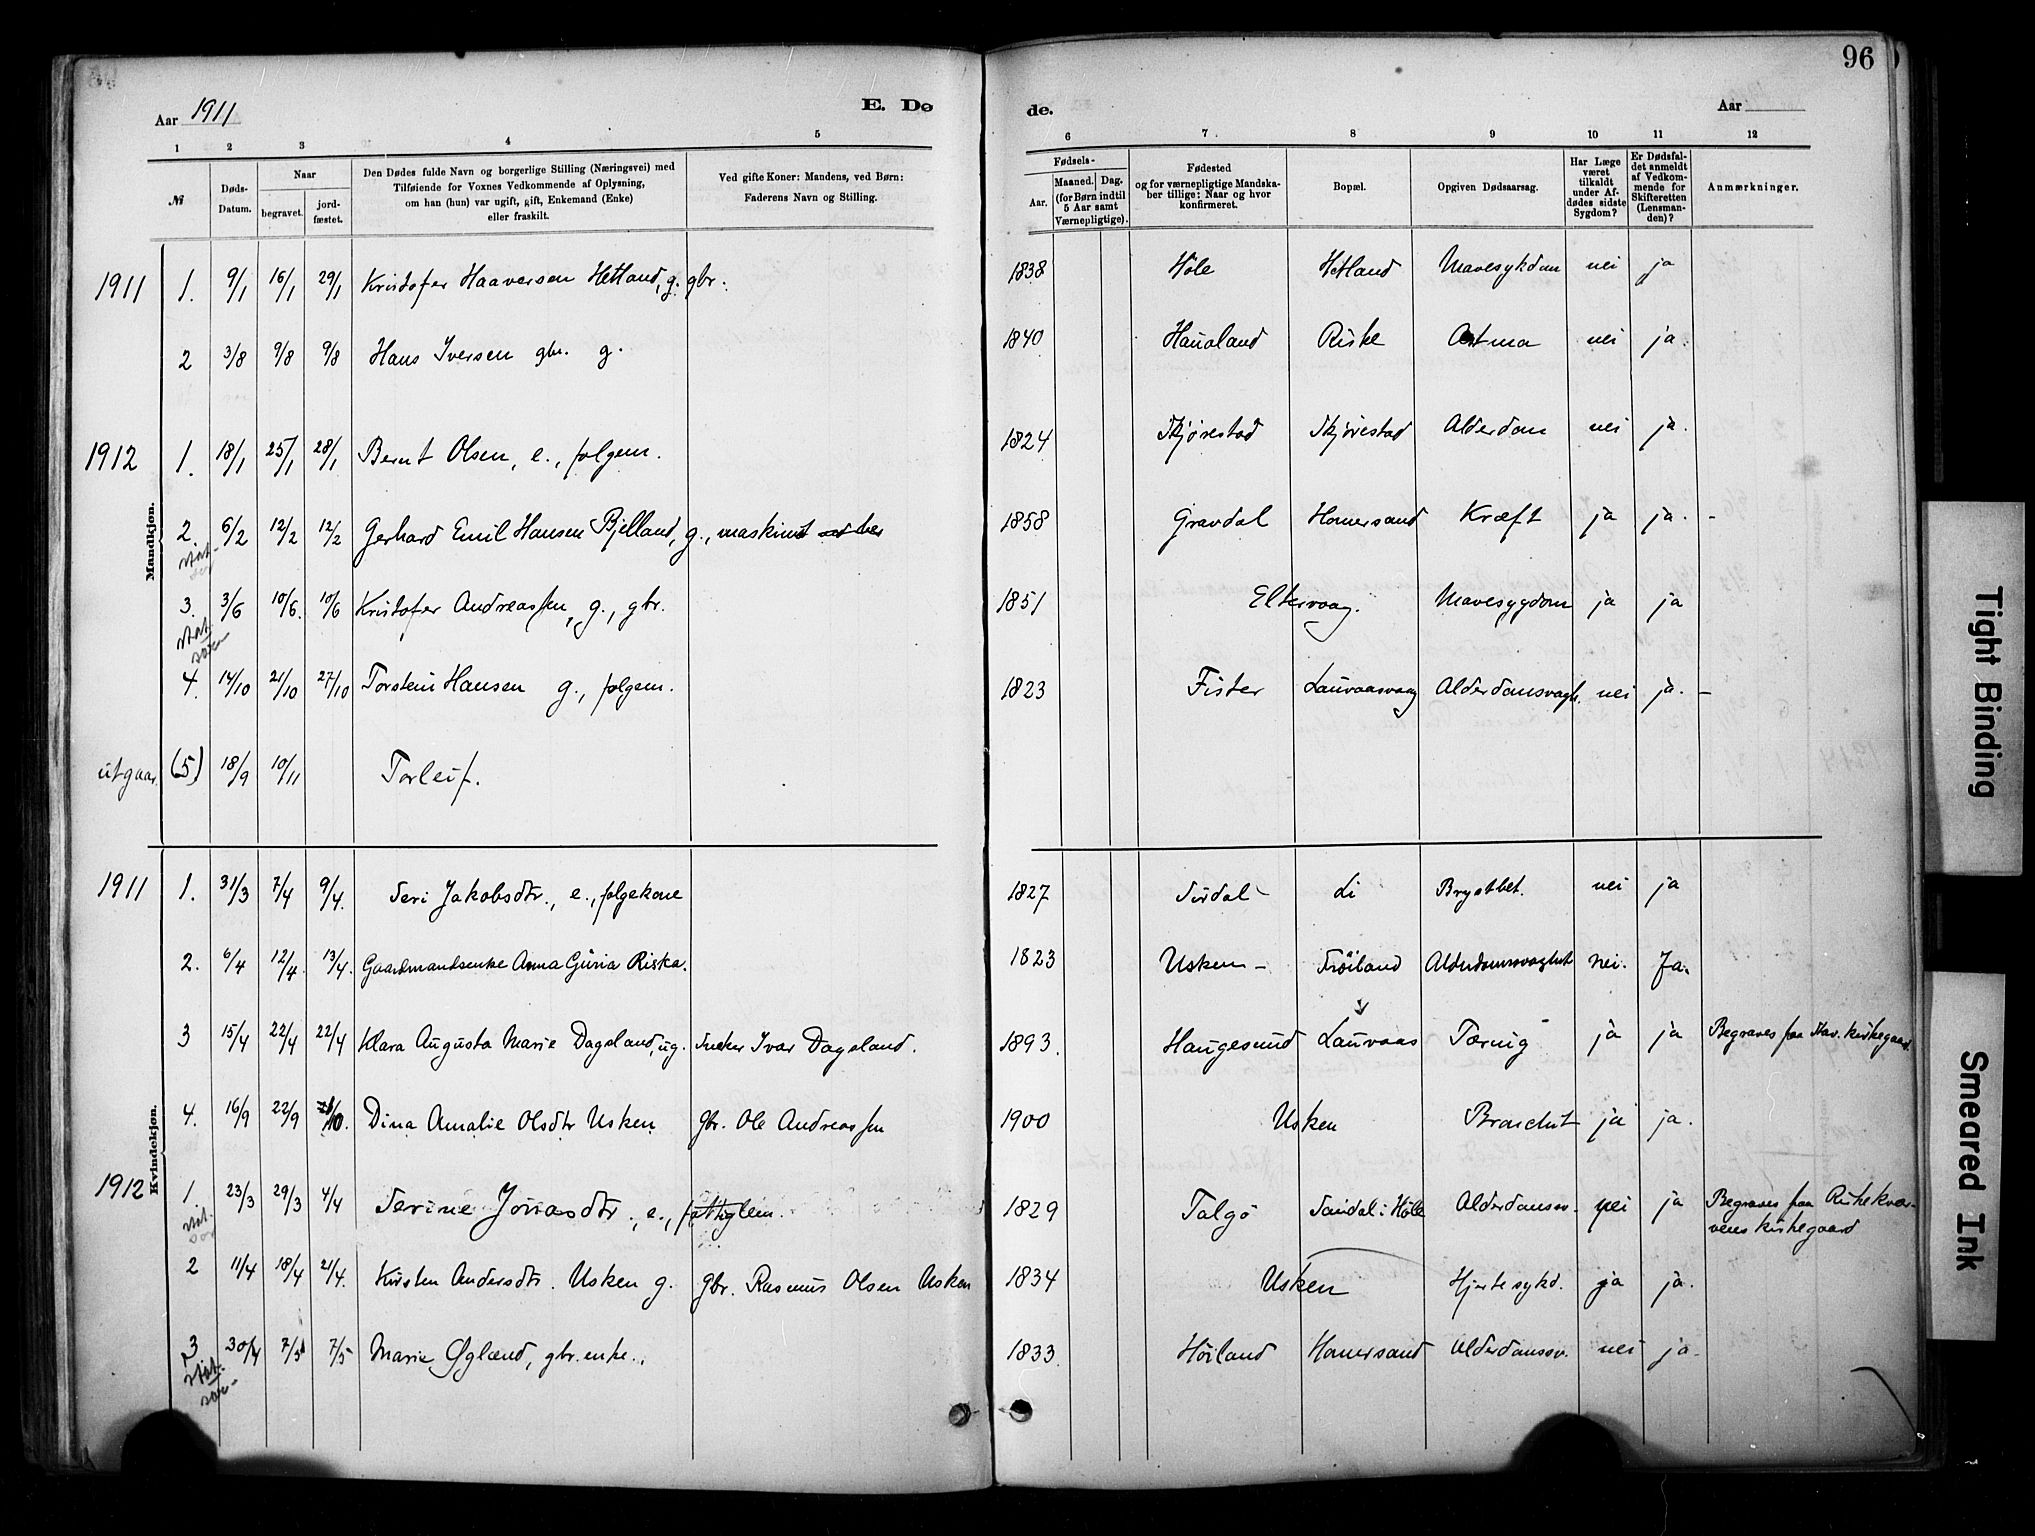 96
Aar 1911
E. Dø
de.
Aar
1 2 3 4 5 6 7 8 9 10 11 12
№
Døds-Datum.
Naar
begravet.
jord-fæstet.
Den Dødes fulde Navn og borgerlige Stilling (Næringsvei) med
Tilføiende for Voxnes Vedkommende af Oplysning,
om han (hun) var ugift, gift, Enkemand (Enke)
eller fraskilt.
Ved gifte Koner: Mandens, ved Børn:
Faderens Navn og Stilling.
Fødsels-
Aar.
Maaned. Dag.
(for Børn indtil
5 Aar samt
Værnepligtige).
Fødested
og for værnepligtige Mandska-
ber tillige: Naar og hvor
konfirmeret.
Bopæl.
Opgiven Dødsaarsag.
Har Læge
været
tilkaldt
under Af-
dødes sidste
Sygdom?
Er Dødsfal-
det anmeldt
af Vedkom-
mende for
Skifteretten
(Lensman-
den)?
Anmærkninger.
Mandkjøn.
1911 1. 9/1 16/1 29/1 Kristofer Haaversen Hetland, g. gbr. 1838 Höle Hetland Mavesykdom nei ja
2 3/8 9/8 9/8 Hans Iversen gbr. g. 1840 Haualand Riske Astma nei ja.
1912 1. 18/1 25/1 28/1 Bernt Olsen, e., folgem. 1824 Skjørestad Skjörestad Alderdom nei ja.
2. 6/2 12/2 12/2 Gerhard Emil Hansen Bjelland, g., maskinist 1858 Gravdal Homersand Kræft ja ja. -
3. 3/6 10/6. 10/6 Kristofer Andreassen, g., gbr. 1851 Eltervaag. Mavesygdom ja ja
4. 14/10 21/10 27/10 Torstein Hansen g., folgem. 1823 Fister Lauvaasvaag Alderdomsvagh. nei ja. -
utgaar. (5) 18/9 10/11 Torleif.
Kvindekjøn.
1911 1. 31/3 7/4 9/4. Seri Jakobsdtr., e., folgekone 1827 Sirdal - Li Brystbet. nei ja
2. 6/4 12/4. 13/4. Gaardmandsenke Anna Guria Riska. 1823 Usken - Fröiland Alderdomsvaghet nei. Ja.
3 15/4 22/4 22/4 Klara Augusta Marie Dagsland, ug. Ivar Dagsland. 1893. Haugesund Lauvaas Tæring ja ja Begraves paa Hav. kirkegaard.
4. 16/9 22/9 1/10. Dina Amalie Olsdtr Usken Gbr. Ole Andreassen 1900 Usken ja ja.
1912 1. 23/3 29/3 4/4 Serine Jonasdtr., e., fattiglem. 1829 Talgö Sandal i Höle Alderdomssv. nei ja Begraves paa Riskekvær-
vens kirkegaard
2 11/4 18/4 21/4. Kirsten Andersdtr. Usken g. Gbr. Rasmus Olsen Usken 1834 Usken Hjertesykd. ja ja.
3 30/4 7/5 7/5 Marie Øglænd, gbr. enke. 1833. Höiland Homersand Alderdomssv. nei ja.
Tight Binding
Smeared Ink